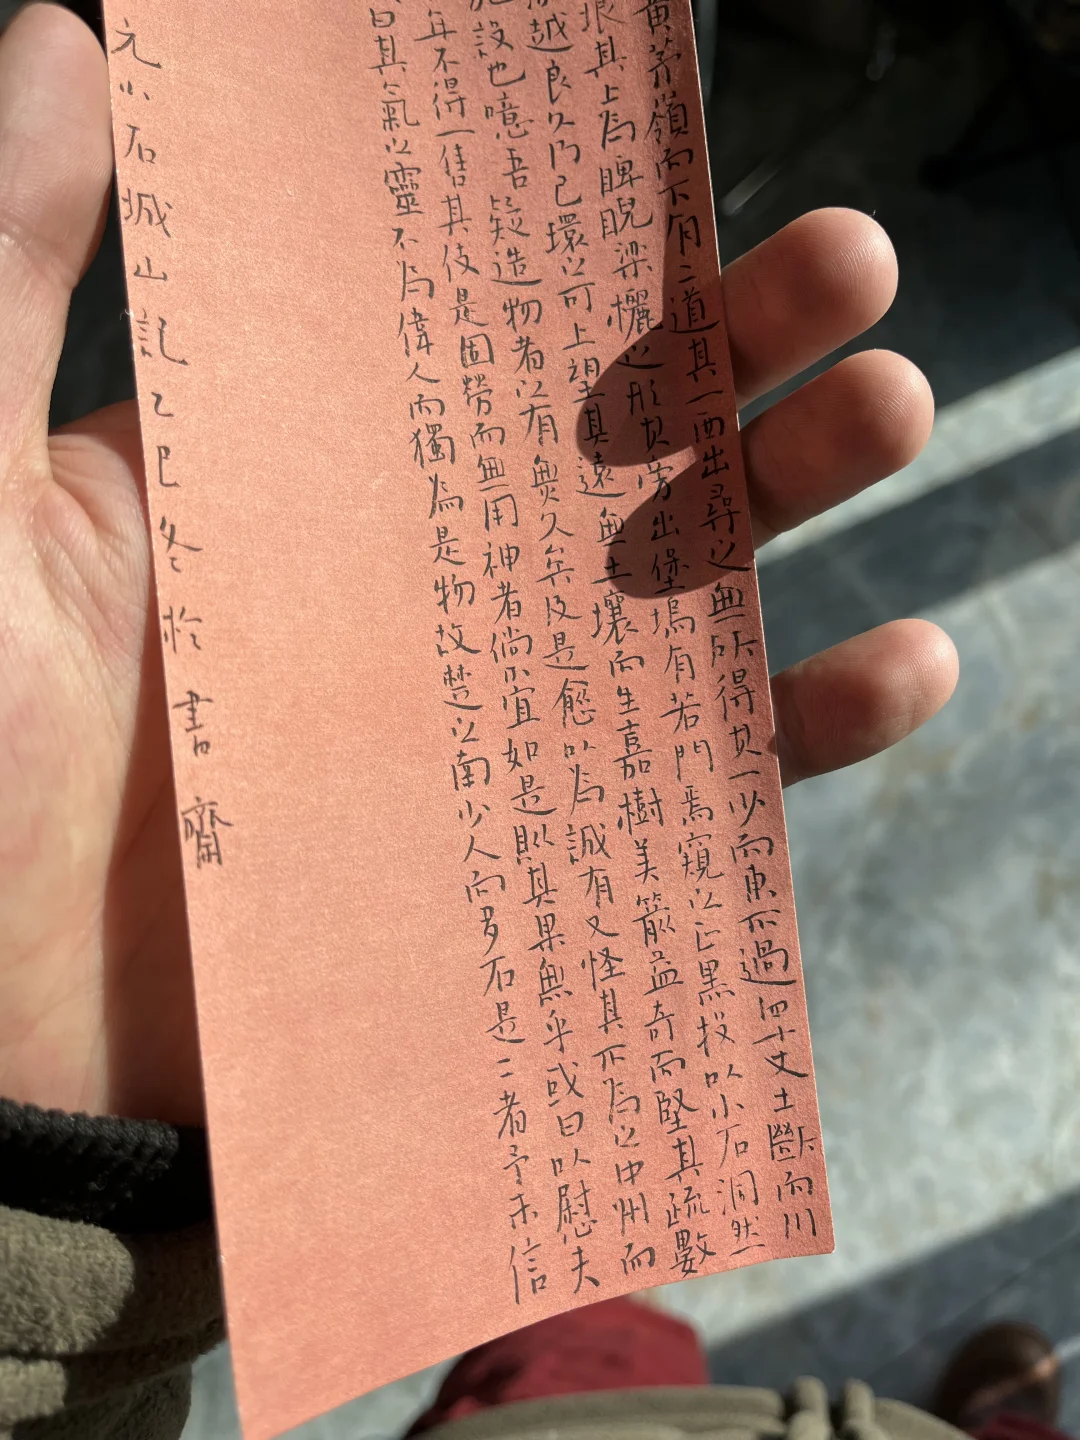 黃茅嶺而下有二道其一西出尋之無所得其一少而東不過四十丈土斷而川
垠其上為睥睨梁欐之形其旁出堡塢有若門焉窺之正黑投以小石洞然
越良久乃已環之可上望其遠無土壤而生嘉樹美箭益奇而堅其疏數
設也噫吾疑造物者之有無久矣及是愈以為誠有又怪其不為之中州而
年不得一售其伎是固勞而無用神者倘不宜如是則其果無乎或曰以慰夫
曰其氣之靈不為偉人而獨為是物故楚之南少人而多石是二者予未信
元小石城山記乙巳冬於書齋